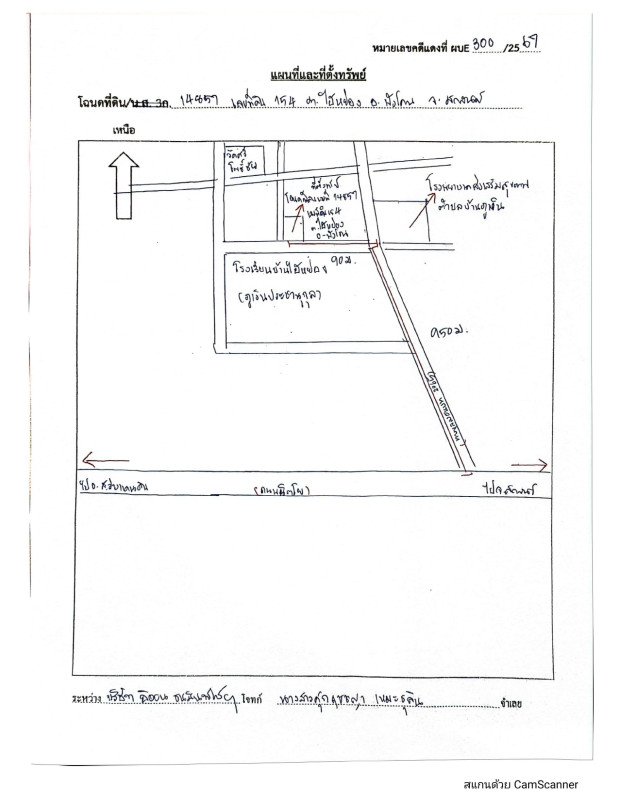 หมายเลขคดีแดงที่ ผบE 300 /25 67
แผนที่และที่ตั้งทรัพย์
โฉนดที่ดิน/น.ส. 3ก. 14857 เลขที่ดิน 154 ต.ไฮหย่อง อ.พังโคน จ.สกลนคร
เหนือ
วัดศรีโพธิ์ชัย
ที่ตั้งทรัพย์
โฉนดที่ดินเลขที่ 14857
เลขที่ดิน 154
ต.ไฮหย่อง
อ.พังโคน
โรงพยาบาลส่งเสริมสุขภาพ
ตำบลบ้านดูเงิน
โรงเรียนบ้านไฮหย่อง 90ม.
(ดูเงินประชานุกูล)
950 ม.
ไปอ. สว่างแดนดิน
(ถนนนิตโย)
ไปจ.สกลนคร
ระหว่าง บริษัท โจทก์ นางสาว จำเลย
สแกนด้วย CamScanner